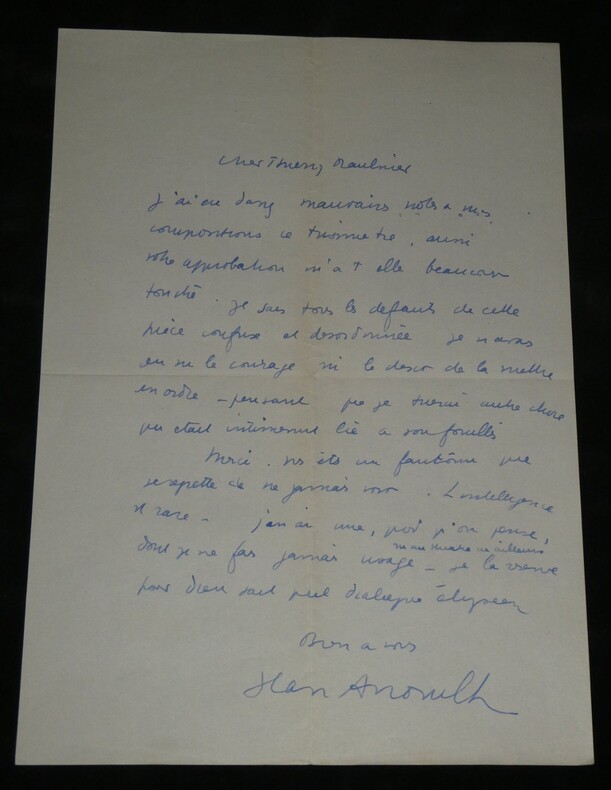 Cher Thierry Maulnier
j'ai eu mauvaises notes a mes
compositions ce trimestre, aussi
votre approbation m'a t elle beaucoup
touché. Je sais tous les defauts de cette
pièce confuse et desordonnée je n'avais
eu ni le courage ni le desir de la mettre
en ordre – pensant que je tuerai autre chose
qui etait intimement lié a son fouillis
Merci. vs êtes un fantôme que
je regrette de ne jamais voir. L'intelligence
est rare – j'en ai une, quoi qu'on pense,
dont je ne fais jamais usage – ni au theatre ni ailleurs je la reserve
pour dieu sait quel dialogue élyséen
Bien a vous
Jean Anouilh